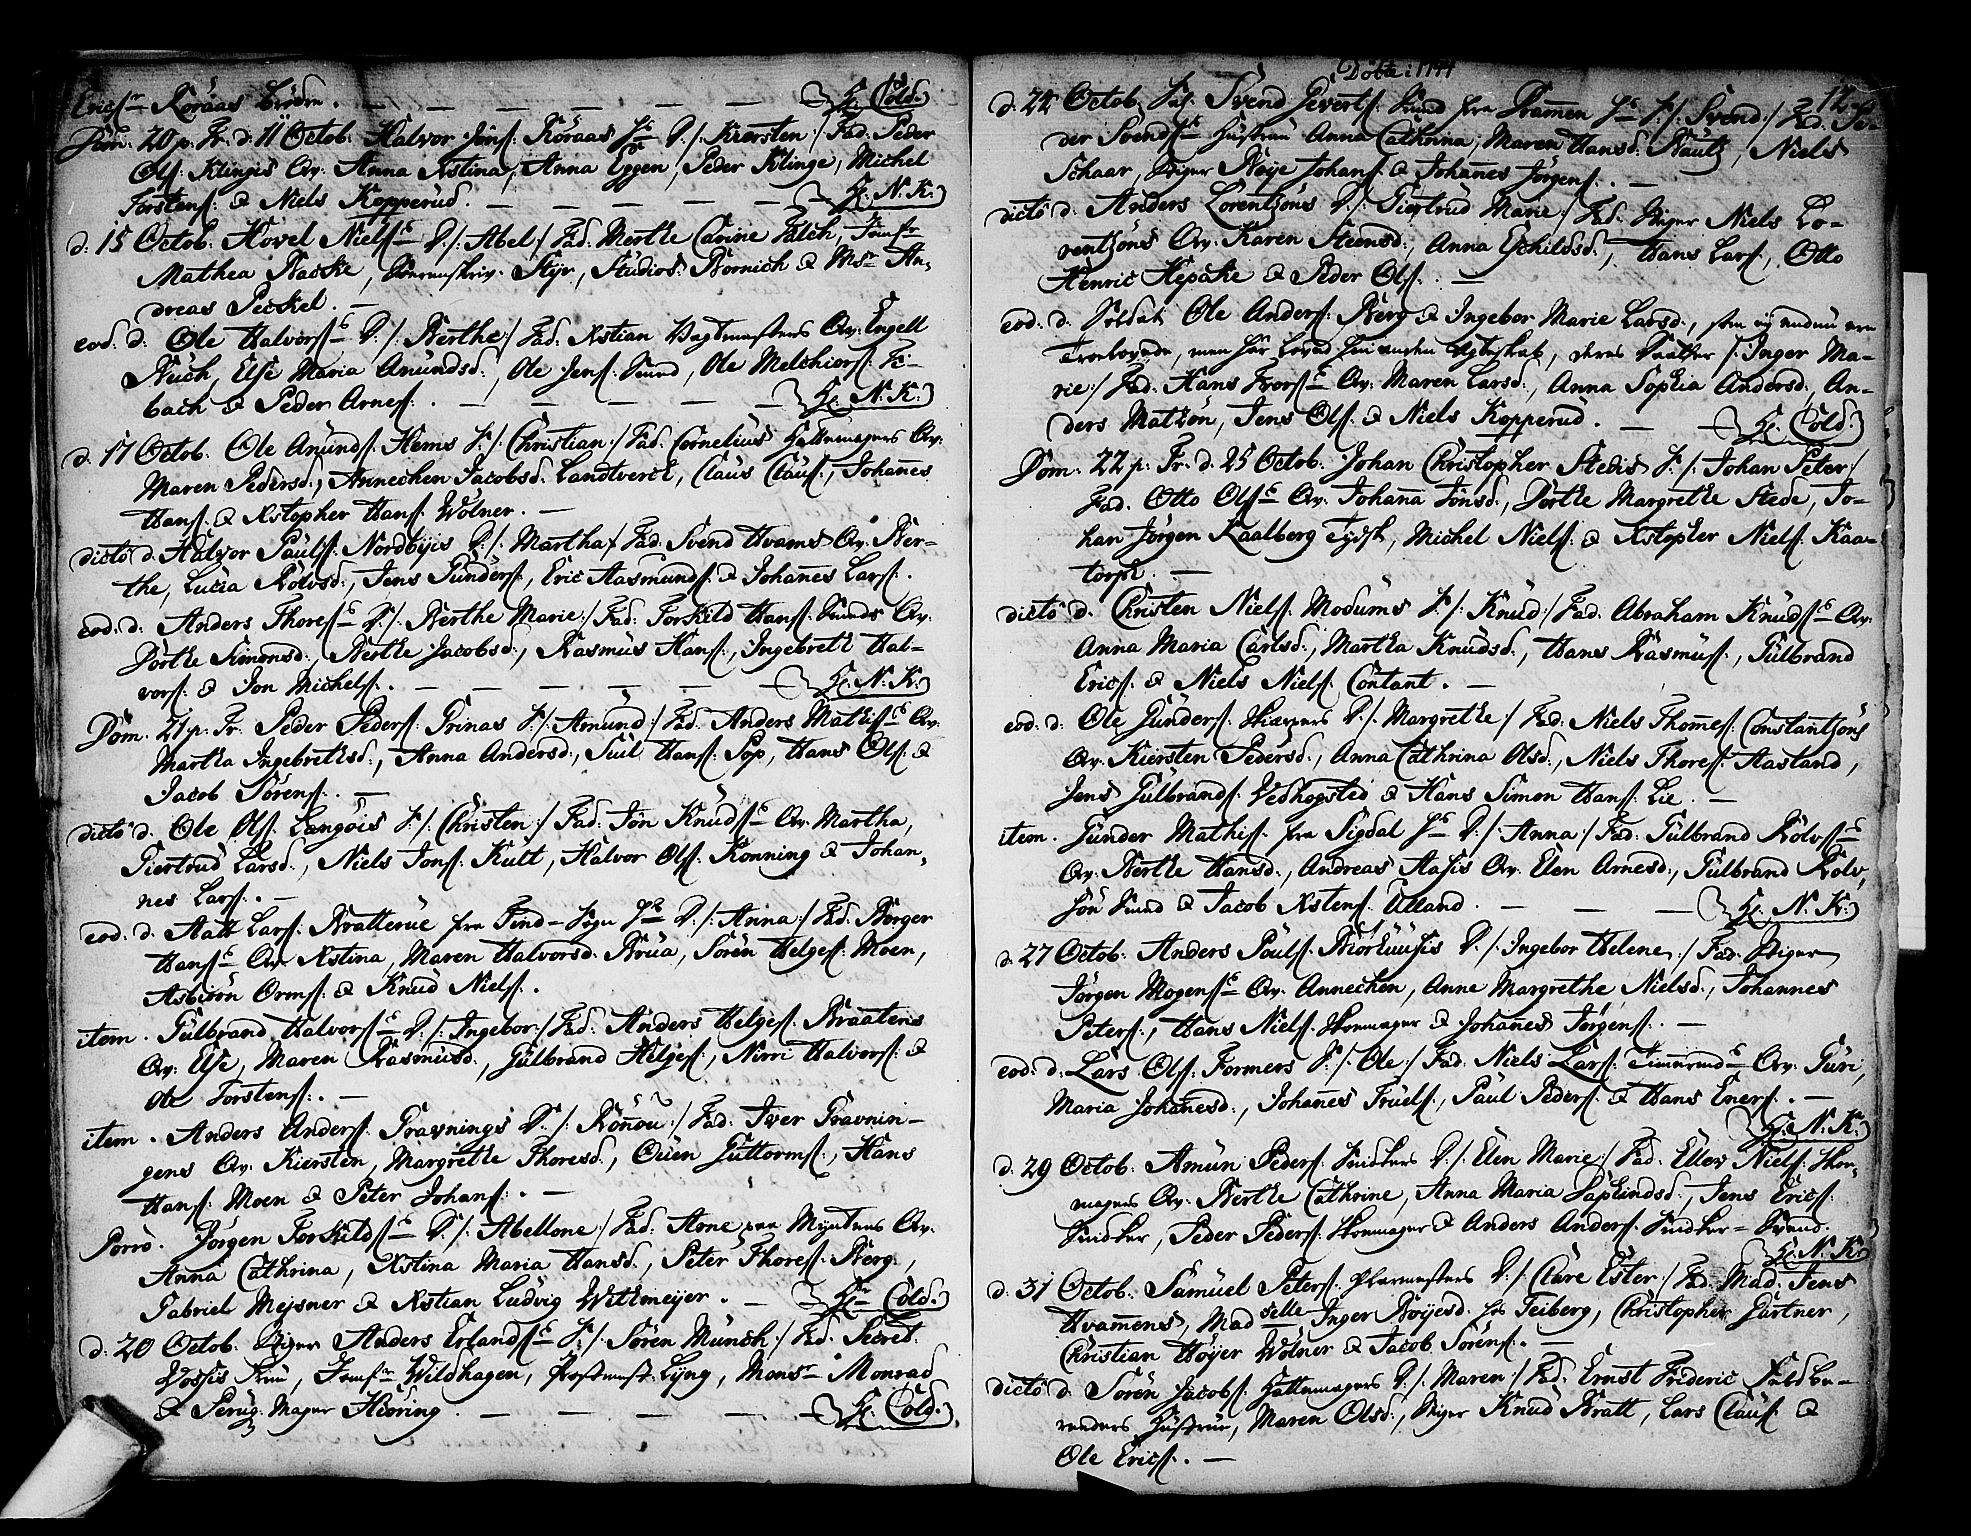 Ericss: Koraas Brudm. — — — — — Hr. Cold.
Dom: 20 p. Tr. d. 11 Octob: Halvor Jonss: Koraas Hs D./: Kiersten:/ Fad: Peder
Olss: Klingis Qv: Anna Xstina, Anna Eggen, Peder Klinge, Michel
Torstenss: & Niels Kopperud. — — — — — H. N. K.
d. 15 Octob. Hovel Nielss D./: Abel:/ Fad. Merthe Carine Falch, Jomfr
Mathea Backe, Styr, Studios: Bornich & Msr An-
dreas Peckel. —
eod. d. Ole Halvorss D./: Berthe:/ Fad: Xstian Vagtmesters Qv: Engell
Buch, Else Maria Amundsd:, Ole Jenss: Smed, Ole Melchiorss: Fi-
bach & Peder Arness. — — — — H. N. K.
d. 17 Octob. Ole Amundss: Hems S./: Christian:/ Fad: Cornelius Hattemagers Qv:
Maren Pedersd:, Annechen Jacobsd. Landtverck, Claus Clauss:, Johannes
Hanss: & Xstopher Hanss: Wolner. —
dicto d. Halvor Paulss: Nordbyis D./: Martha:/ Fad: Svend Hvams Qv: Ber-
the, Lucia Rolvsd:, Jens Gunderss, Eric Aasmundss: & Johannes Larss.
eod: d: Anders Thoress D./: Berthe Marie:/ Fad: Torkild Hanss: Smeds Qv:
Dorthe Simonsd:, Berthe Jacobsd:, Rasmus Hanss., Ingebreth Hal-
vorss. & Jon Michelss. — — — — H. N. K.
Dom. 21 p. Tr. Peder Pederss: Prinas S./: Amund:/ Fad: Anders Mathiss Qv:
Martha Ingebrethsd:, Anna Andersd:, Juul Hanss: Sop, Hans Olss: &
Jacob Sörenss. —
dicto d. Ole Olss: Langöis S./: Christen:/ Fad: Jon Knudss Qv: Martha,
Giertrud Larsd:, Niels Jonss: Kult, Halvor Olss: Konning & Johan-
nes Larss. —
eod. d. Aatt Larss: Bratterue fra Tind-Sogn Hs D./: Anna:/ Fad: Borger
Hanss Qv: Xstina, Maren Halvorsd: Brua, Sören Helgess: Moen,
Asbiörn Ormss: & Knud Nielss.
item. Gulbrand Halvorss D./: Ingebor:/ Fad: Anders Helgess: Braatens
Qv: Else, Maren Rasmusd., Gulbrand Helgess:, Nirri Halvorss: &
Ole Torstenss: —
item. Anders Anderss: Gravnings D./: Ronnou:/ Fad: Iver Gravnin-
gens Qv: Kiersten, Margrethe Thoresd:, Ouen Guttormss:, Hans
Hanss: Moen & Peter Johanss. —
Porro. Jörgen Torkildss D./: Abellone:/ Fad: Arne paa Myntens Qv:
Anna Cathrina, Xstina Maria Hansd:, Peter Thoress: Berg,
Gabriel Mejsner & Xstian Ludvig Withmeyer. — Hr Cold.
d: 20 Octob: Stiger Anders Erlandss S./: Sören Münch:/ Fad: Secret.
Vossis Frue, Jomfr Wildhagen, Postmest: Lyng, Monsr Monrad
& Peruq: Mager Hioring. — — — — H. Cold.
Döbte: 1744
12.
d. 24 Octob. Sal. Svend Sivertss: Smed fra Drammen Hs S./: Svend:/ Fad. Pe-
der Svendss Hustrue Anna Cathrina, Maren Hansd. Bautz, Niels
Schaar, Stiger Noye Johanss: & Johannes Jörgenss. —
dicto d. Anders Lorentzöns D./: Giertrud Marie:/ Fad. Stiger Niels Lo-
rentzöns Qv: Karen Steensd:, Anna Eschildsd:, Hans Larss, Otto
Henric Hepake & Peder Olss. —
eod. d. Soldat Ole Anderss: Berg & Ingebor Marie Larsd:, som ey endnu ere
Troelovede, men har lovet hinanden Ægteskab, deres Daatter /: Inger Ma-
rie:/ Fad: Hans Iverss Qv: Maren Larsd:, Anna Sophia Andersd:, An-
ders Matzön, Jens Olss: & Niels Kopperud. — — H. Cold.
Dom: 22 p: Tr. d. 25 Octob: Johan Christopher Stedis S./: Johan Peter:/
Fad. Otto Olss Qv: Johanna Jonsd:, Dorthe Margrethe Stede, Jo-
han Jörgen Kaalberg Tydsk, Michel Nielss: & Xstopher Nielss: Kaa-
torpe. —
dicto d. Christen Nielss: Modums S./: Knud:/ Fad. Abraham Knudss Qv:
Anna Maria Carlsd:, Martha Knudsd:, Hans Rasmuss:, Gulbrand
Ericss: & Niels Nielss: Contant. —
eod: d. Ole Gunderss: D./: Margrethe:/ Fad: Niels Thomess: Constantzöns
Qv: Kiersten Pedersd:, Anna Cathrina Olsd:, Niels Thoress: Aasland,
Jens Gulbrandss: Vedhogsted & Hans Simon Hanss: Lie. —
item. Gunder Mathiss: fra Sigdal Hs D./: Anna:/ Fad: Gulbrand Rolvss
Qv: Berthe Hansd:, Andreas Aasis Qv: Elen Arnesd:, Gulbrand Rolv-
sön Smed & Jacob Xstenss: Ulland. — — — H. N. K.
d. 27 Octob: Anders Poulss: Biorkuusis D./: Ingebor Helene:/ Fad: Stiger
Jörgen Mogenss Qv: Annechen, Anne Margrethe Nielsd:, Johannes
Peterss:, Hans Nielss: Skomager & Johanes Jörgenss:. —
eod: d: Lars Olss: Formers S./: Ole:/ Fad. Niels Larss: Timmermds Qv: Guri,
Maria Johanesd:, Johannes Truelss:, Paul Pederss: & Hans Enerss:. —
H. N. K.
d. 29 Octob: Amun Pederss: Snidkers D./: Elen Marie:/ Fad. Ellev Nielss: Skor-
magers Qv: Berthe Cathrine, Anna Maria Saphindsd:, Jens Ericss:
Snidker, Peder Pederss: Skomager & Anders Anderss: Snidker-Svend.
H. N. K.
d. 31 Octob: Samuel Peterss: D./: Clare Ester:/ Fad. Mad: Jens
Hvammens, Madselle Inger Böyesd. hos Feiberg, Christopher Gartner,
Christian Höyer Wolner & Jacob Sörenss:. —
dicto d. Sören Jacobss: Hattemagers D./: Maren:/ Fad: Ernst Frideric Faldbe-
renders Hustrue, Maren Olsd:, Stiger Knud Bratt, Lars Clauss: &
Ole Ericss:. —